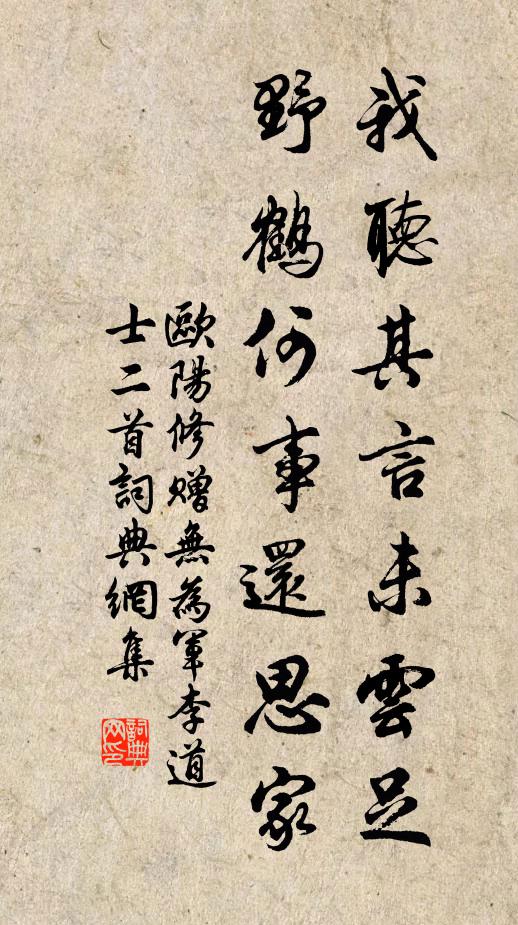 我聽其言未雲足
野鶴何事還思家
歐陽修贈無為軍李道
士二首詞典網集
詞典
網印